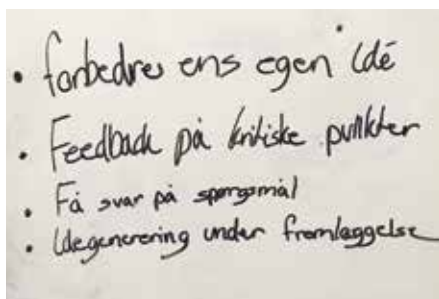 • forbedre ens egen idé
• Feedback på kritiske punkter
• Få svar på spørgsmål
• Idegenerering under fremlæggelse